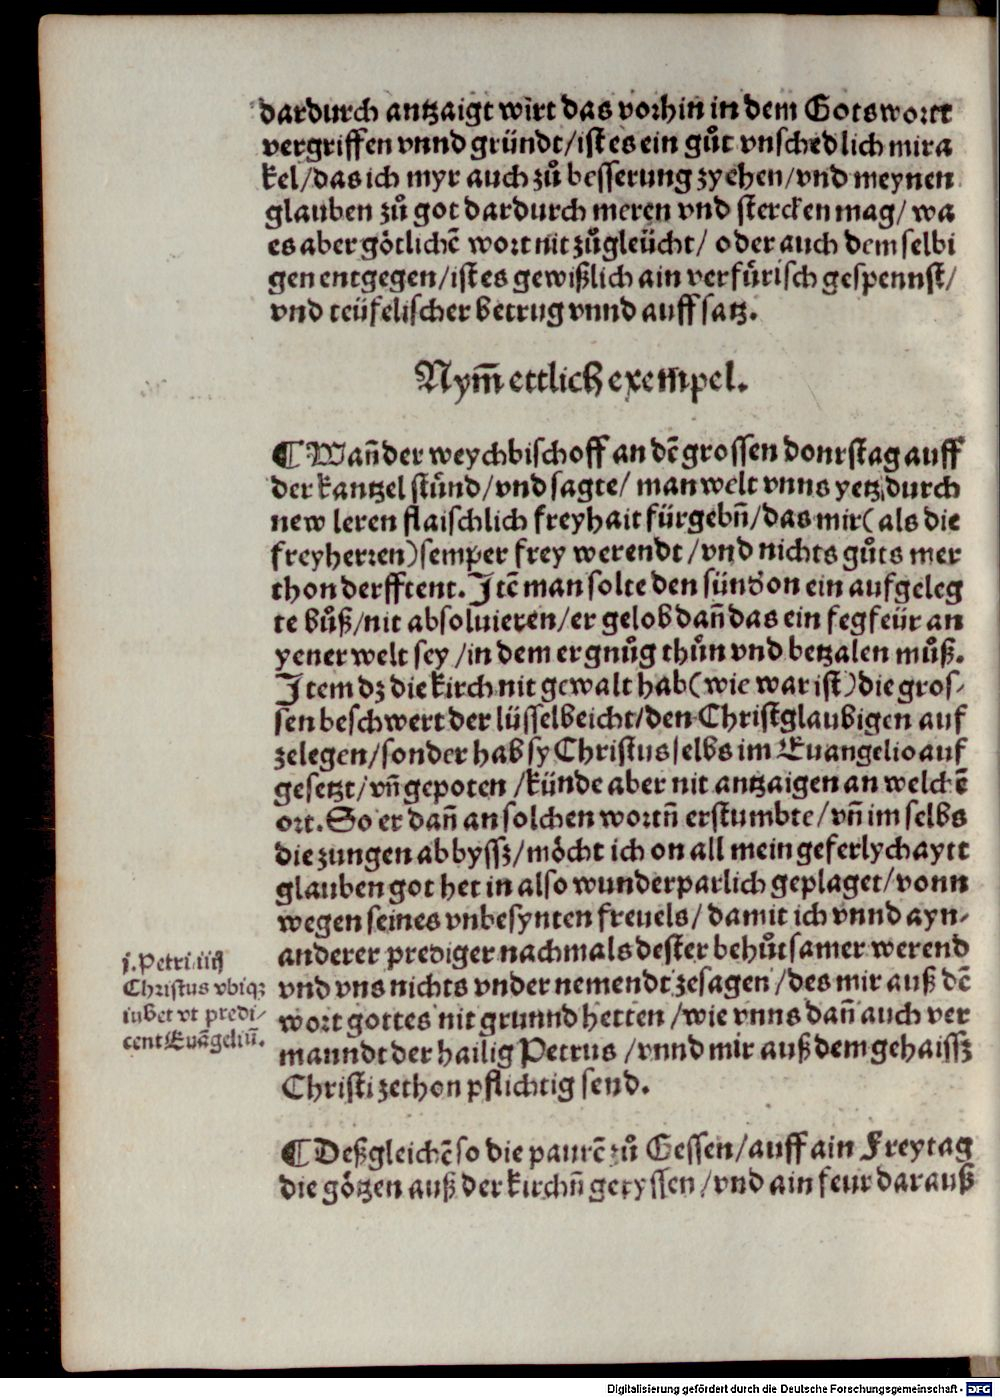 dardurch antzaigt wirt das vorhin in dem Gotswortt
vergriffen vnnd gründt/ist es ein gůt vnschedlich mira
kel/das ich myr auch zů besserung zyehen/vnd meynen
glauben zů got dardurch meren vnd stercken mag/ wa
es aber götlichē wort nit zůgleücht/ oder auch dem selbi
gen entgegen/ist es gewißlich ain verfürisch gespennst/
vnd teüfelischer betrug vnnd auffsatz.
Nym̄ ettlich exempel.
¶ Wañ der weychbischoff an dē grossen donrstag auff
der kantzel stůnd/vnd sagte/ man welt vnns yetz durch
new leren flaischlich freyhait fürgebñ/das mir( als die
freyherren)semper frey werendt/vnd nichts gůts mer
thon derfftent. Itē man solte den sünder on ein aufgeleg
te bůß/nit absoluieren/er gelob dañ das ein fegfeür an
yener welt sey/in dem er gnůg thůn vnd betzalen můß.
Item dz die kirch nit gewalt hab(wie war ist)die gros-
sen beschwert der lüsselbeicht/den Christglaubigen auf
zelegen/sonder hab sy Christus selbs im Euangelio auf
gesetzt/vñ gepoten/künde aber nit antzaigen an welchē
ort. So er dañ an solchen wortñ erstumbte/vñ im selbs
die zungen abbyssz/möcht ich on all mein geferlychaytt
glauben got het in also wunderparlich geplaget/vonn
wegen seines vnbesynten freuels/damit ich vnnd ayn-
anderer prediger nachmals dester behůtsamer werend
vnd vns nichts vnder nemendt zesagen/des mir auß dē
wort gottes nit grunnd hetten/wie vnns dañ auch ver
manndt der hailig Petrus/vnnd mir auß dem gehaissz
Christi zethon pflichtig send.
j. Petri iiij
Christus vbiqz
iubet vt predi-
cent Euāgeliū.
¶ Deßgleichē so die paurē zů Gessen/auff ain Freytag
die götzen auß der kirchñ geryssen/vnd ain feur darauß
Digitalisierung gefördert durch die Deutsche Forschungsgemeinschaft - DFG